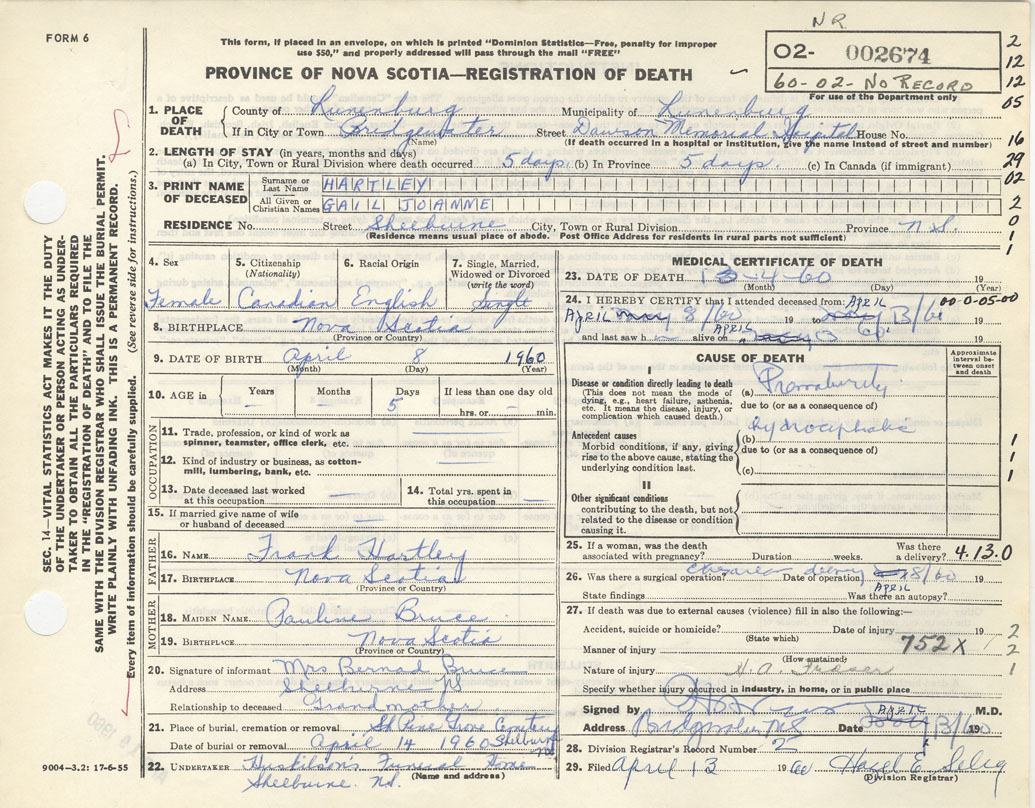 NR
FORM 6
This form, if placed in an envelope, on which is printed "Dominion Statistics—Free, penalty for improper
use $50," and properly addressed will pass through the mail "FREE"
O2- 002674
60-02-NO RECORD
For use of the Department only
PROVINCE OF NOVA SCOTIA—REGISTRATION OF DEATH
2
12
12
05
16
29
02
2
0
1
1. PLACE OF DEATH County of Lunenburg Municipality of Lunenburg
If in City or Town Bridgewater Street Dawson Memorial Hospital House No.
(Name) (If death occurred in a hospital or institution, give the name instead of street and number)
2. LENGTH OF STAY (in years, months and days)
(a) In City, Town or Rural Division where death occurred 5 days (b) In Province 5 days. (c) In Canada (if immigrant)
3. PRINT NAME OF DECEASED
Surname or Last Name HARTLEY
All Given or Christian Names GAIL JOANNE
RESIDENCE No. Street Shelburne City, Town or Rural Division Province N.S.
(Residence means usual place of abode. Post Office Address for residents in rural parts not sufficient)
4. Sex 5. Citizenship (Nationality) 6. Racial Origin 7. Single, Married, Widowed or Divorced (write the word)
Female Canadian English Single
8. BIRTHPLACE Nova Scotia
(Province or Country)
9. DATE OF BIRTH April 8 1960
(Month) (Day) (Year)
10. AGE in Years Months Days If less than one day old
— — 5 hrs. or — min.
OCCUPATION
11. Trade, profession, or kind of work as
spinner, teamster, office clerk, etc.
12. Kind of industry or business, as cotton-
mill, lumbering, bank, etc.
13. Date deceased last worked
at this occupation
14. Total yrs. spent in
this occupation
15. If married give name of wife
or husband of deceased
FATHER
16. NAME Frank Hartley
17. BIRTHPLACE Nova Scotia
(Province or Country)
MOTHER
18. MAIDEN NAME Pauline Bruce
19. BIRTHPLACE Nova Scotia
(Province or Country)
20. Signature of informant Mrs Bernad Bruce
Address Shelburne NS
Relationship to deceased Grandmother
21. Place of burial, cremation or removal Pine Grove Cemetery
Shelburne NS
Date of burial or removal April 14 1960
22. UNDERTAKER Huskilson's Funeral Home
(Name and address)
Shelburne. N.S.
MEDICAL CERTIFICATE OF DEATH
23. DATE OF DEATH 13-4-60 19
(Month) (Day) (Year)
24. I HEREBY CERTIFY that I attended deceased from: APRIL 00-0-05-00
APRIL 8/60 19 to 13/60 19
and last saw h alive on APRIL 13 60 19
CAUSE OF DEATH
Approximate interval between onset and death
I
Disease or condition directly leading to death
(This does not mean the mode of
dying, e.g., heart failure, asthenia,
etc. It means the disease, injury, or
complication which caused death.)
(a) Prematurity
due to (or as a consequence of)
Antecedent causes
Morbid conditions, if any, giving
rise to the above cause, stating the
underlying condition last.
hydrocephalis
(b)
due to (or as a consequence of)
(c)
1
1
1
II
Other significant conditions
contributing to the death, but not
related to the disease or condition
causing it.
25. If a woman, was the death
associated with pregnancy? Duration weeks. Was there a delivery? 4.13.0
26. Was there a surgical operation? Date of operation 8/60 19
APRIL
State findings Was there an autopsy?
27. If death was due to external causes (violence) fill in also the following:—
Accident, suicide or homicide? Date of injury 19
(State which)
Manner of injury 752 X
(How sustained)
Nature of injury H. A. Fraser
Specify whether injury occurred in industry, in home, or in public place
2
1
2
1
Signed by M.D.
Address Bridgewater NS Date APRIL 13/60 19
28. Division Registrar's Record Number 2
29. Filed April 13 1960 Hazel E. Selig
(Division Registrar)
SEC. 14—VITAL STATISTICS ACT MAKES IT THE DUTY
OF THE UNDERTAKER OR PERSON ACTING AS UNDER-
TAKER TO OBTAIN ALL THE PARTICULARS REQUIRED
IN THE "REGISTRATION OF DEATH" AND TO FILE THE
SAME WITH THE DIVISION REGISTRAR WHO SHALL ISSUE THE BURIAL PERMIT.
WRITE PLAINLY WITH UNFADING INK. THIS IS A PERMANENT RECORD.
Every item of information should be carefully supplied. (See reverse side for instructions.)
9004—3.2: 17-6-55